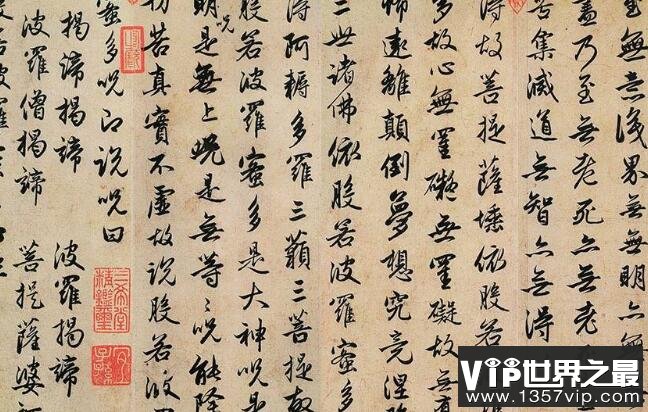 至無意識界無無明亦無
盡乃至無老死亦無老
苦集滅道無智亦無得
得故菩提薩埵依般若
多故心無罣礙無罣礙故無
怖遠離顛倒夢想究竟涅
三世諸佛依般若波羅蜜多
得阿耨多羅三藐三菩提故
般若波羅蜜多是大神呪是
明呪是無上呪是無等〻呪能除
切苦真實不虛故說般若波
蜜多呪即說呪曰
揭諦揭諦 波羅揭諦
波羅僧揭諦 菩提薩婆
三希堂精鑑璽
宜子孫
VIP世界之最
www.1357vip.com